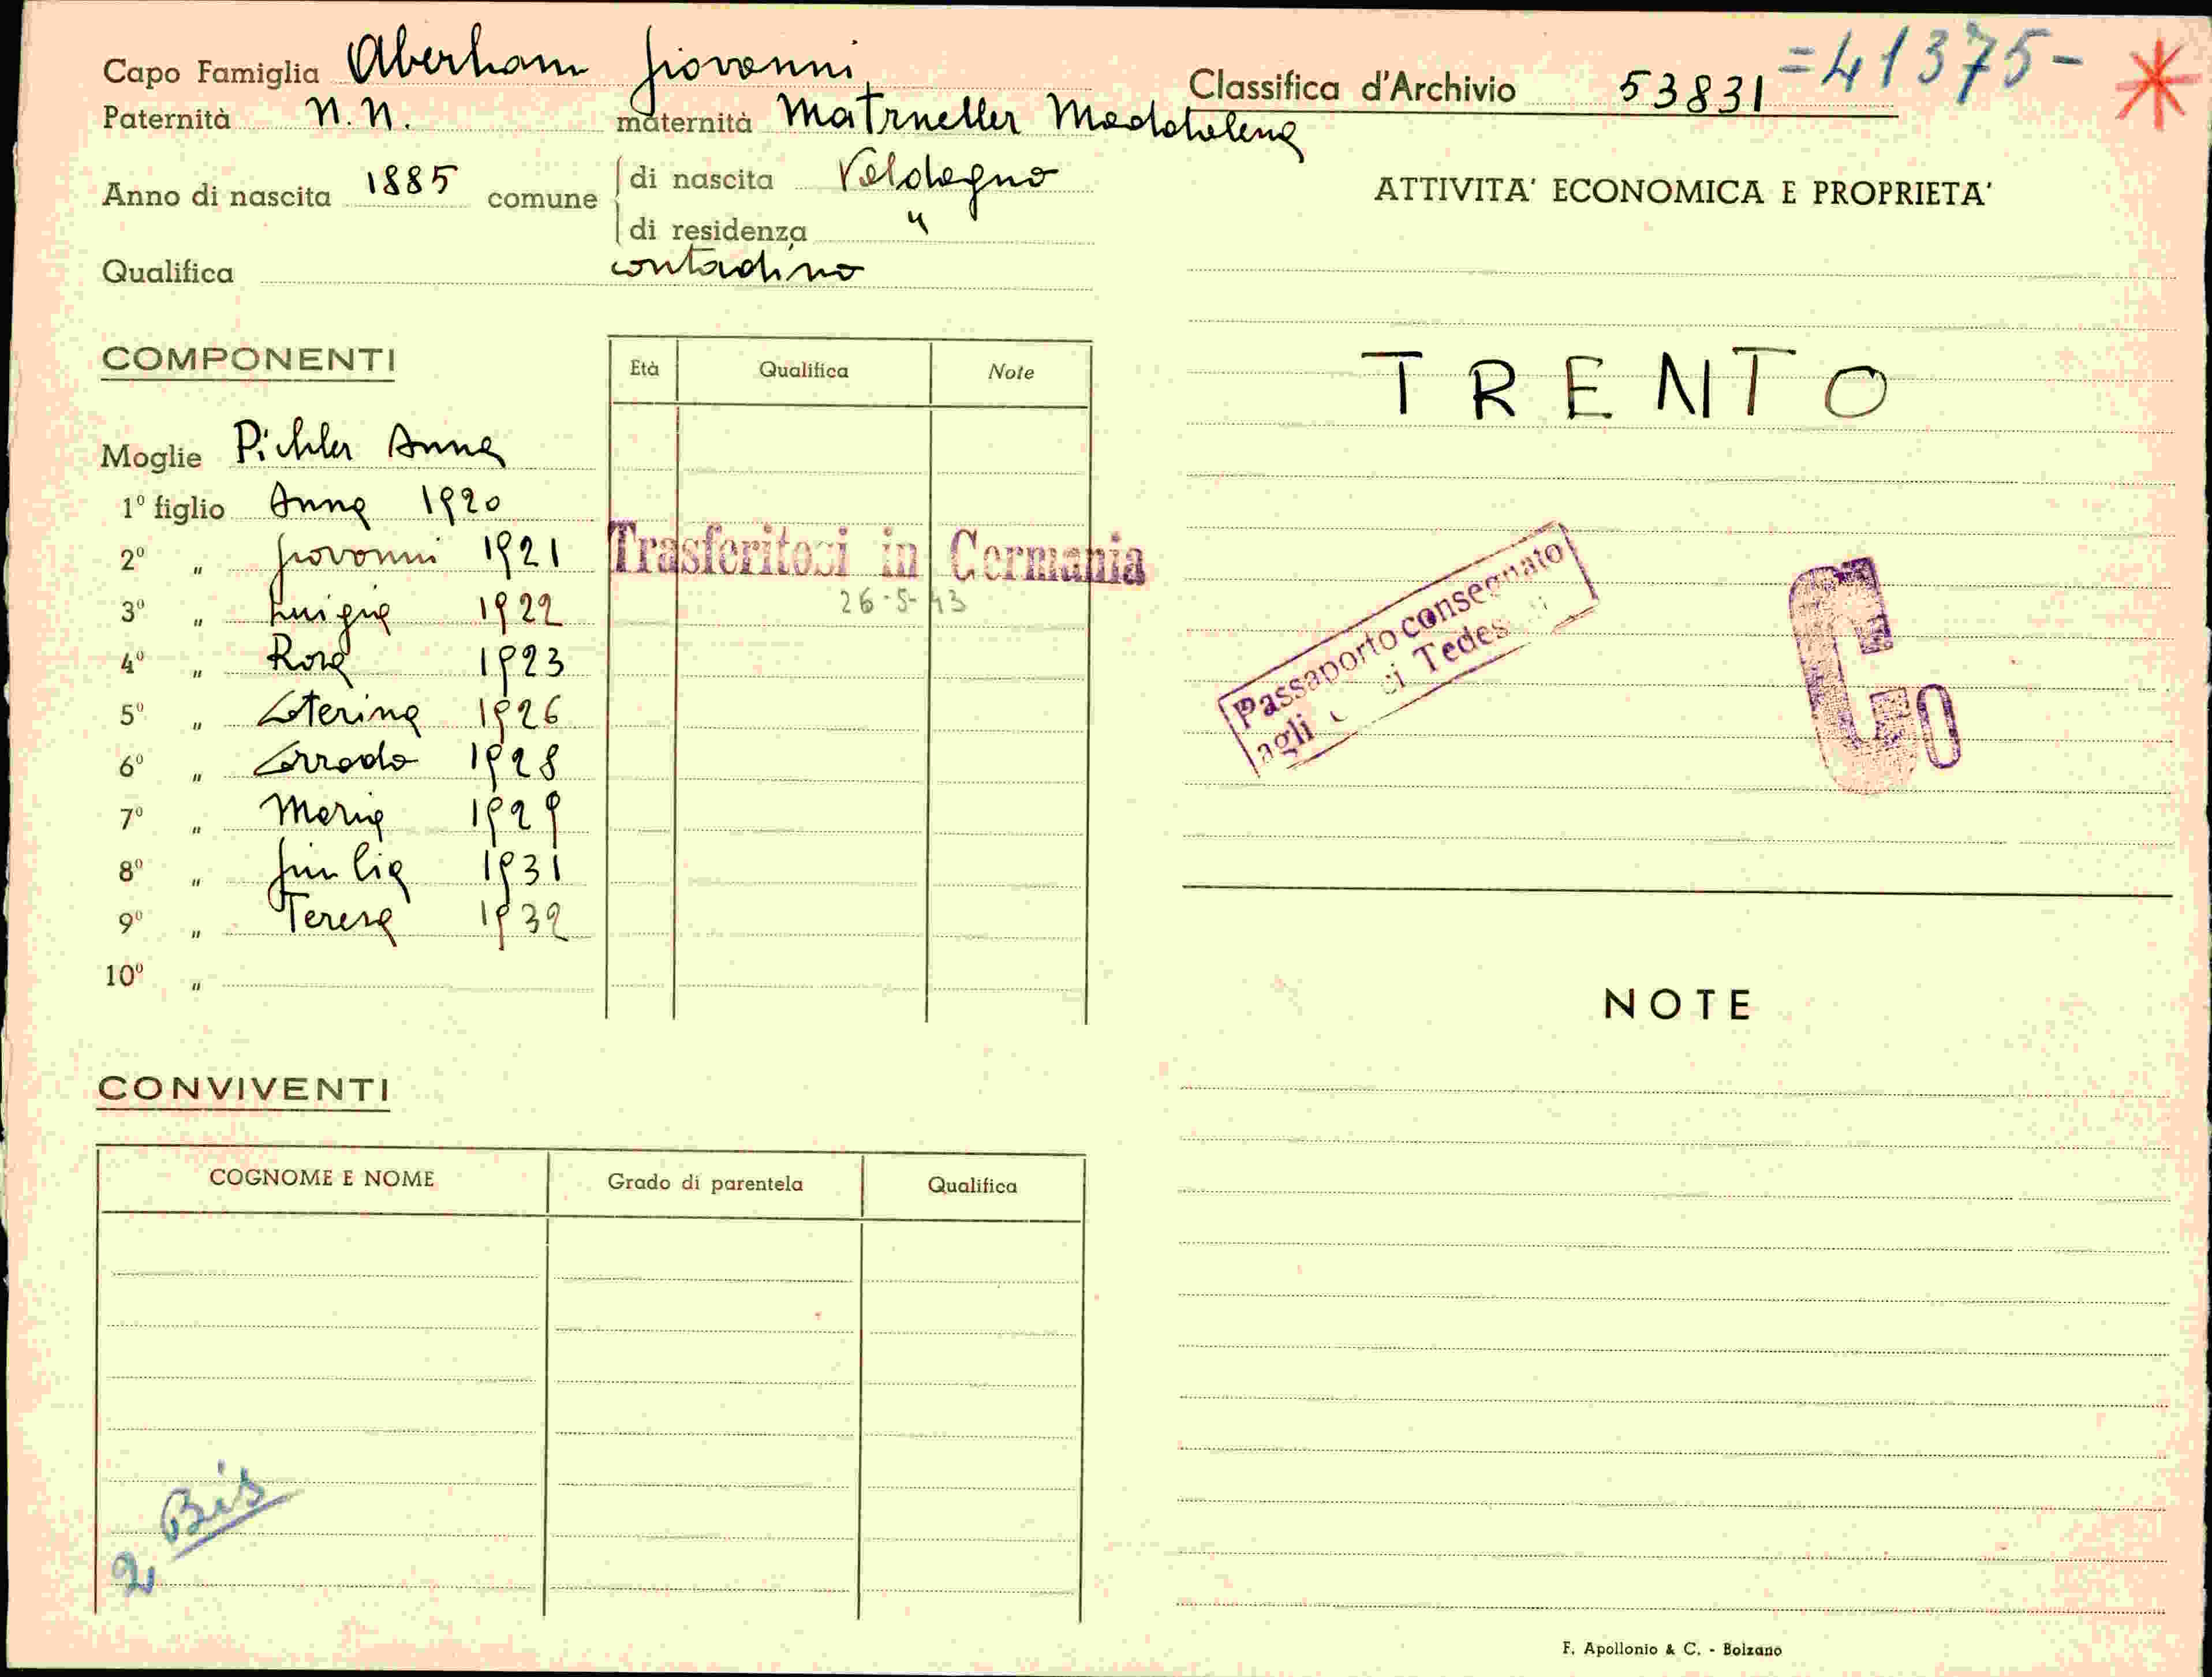 Capo Famiglia Aberham Giovanni
Paternità N.N. maternità Matrneller Maddalena
Anno di nascita 1885 comune di nascita Valdagno
di residenza "
Qualifica contadino
Classifica d'Archivio 53831 =41375-
ATTIVITA' ECONOMICA E PROPRIETA'
TRENTO
Passaporto consegnato
agli Tedes
COMPONENTI
Età Qualifica Note
Moglie Pichler Anna
1º figlio Anna 1920
2º " Giovanni 1921
3º " Luigia 1922
4º " Rosa 1923
5º " Caterina 1926
6º " Corrado 1928
7º " Maria 1929
8º " Giulia 1931
9º " Teresa 1932
10º "
Trasferitosi in Germania
26-5-43
CONVIVENTI
COGNOME E NOME Grado di parentela Qualifica
Bis
2
NOTE
F. Apollonio & C. - Bolzano